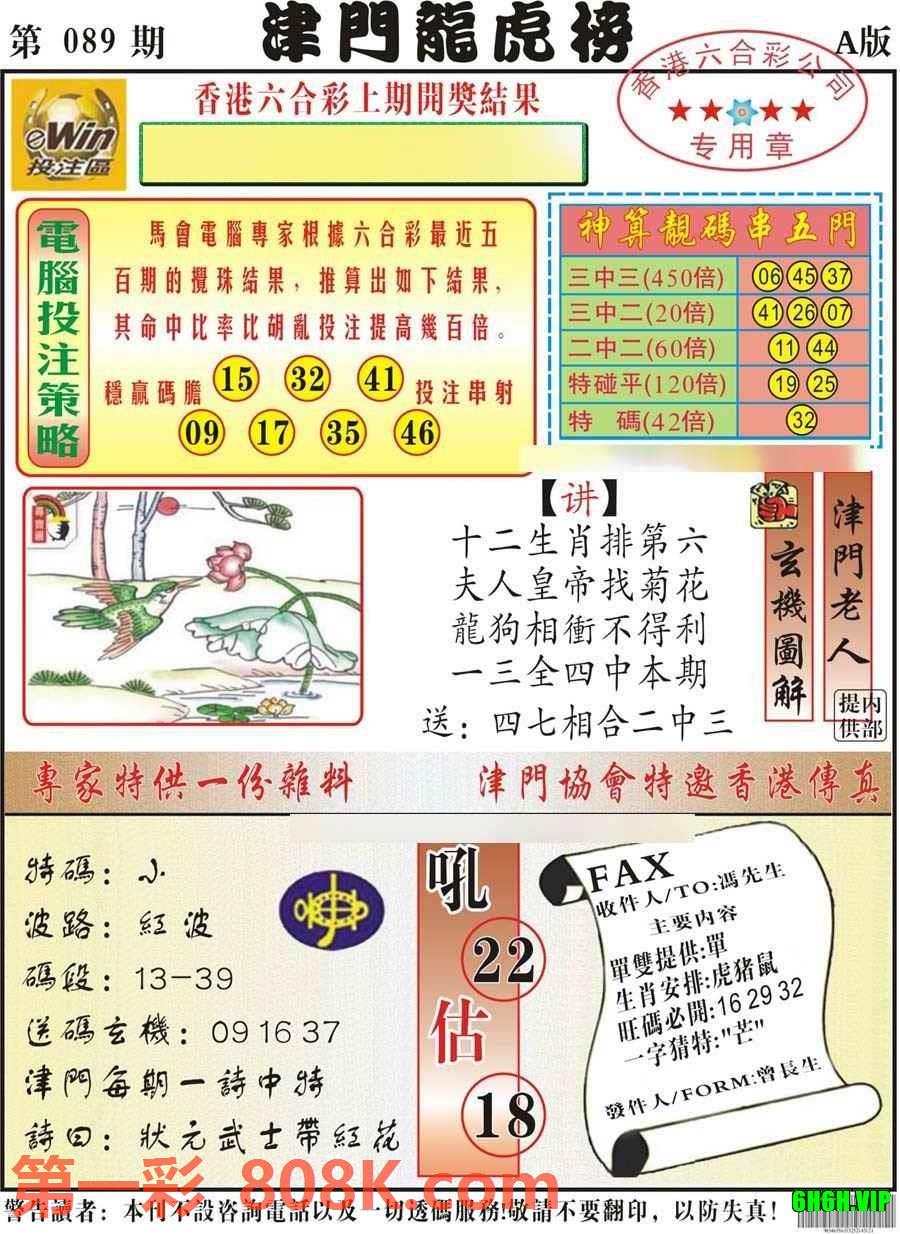 第 089 期
津門龍虎榜
A版
eWin
投注區
香港六合彩上期開獎結果
香港六合彩公司
专用章
電腦投注策略
馬會電腦專家根據六合彩最近五
百期的攪珠結果，推算出如下結果，
其命中比率比胡亂投注提高幾百倍。
穩贏碼膽 15 32 41 投注串射
09 17 35 46
神算靚碼串五門
三中三(450倍) 06 45 37
三中二(20倍) 41 26 07
二中二(60倍) 11 44
特碰平(120倍) 19 25
特 碼(42倍) 32
【讲】
十二生肖排第六
夫人皇帝找菊花
龍狗相衝不得利
一三全四中本期
送：四七相合二中三
玄機圖解
津門老人
内部提供
專家特供一份雜料
津門協會特邀香港傳真
特碼：小
波路：紅波
碼段：13-39
送碼玄機：09 16 37
津門每期一詩中特
詩曰：狀元武士帶紅花
吼
22
估
18
FAX
收件人/TO:馮先生
主要内容
單雙提供:單
生肖安排:虎猪鼠
旺碼必開:16 29 32
一字猜特:"芒"
發件人/FORM:曾長生
第一彩 808K.com
警告讀者：本刊不設咨詢電話以及一切透碼服務!敬請不要翻印，以防失真！
6H6H.VIP